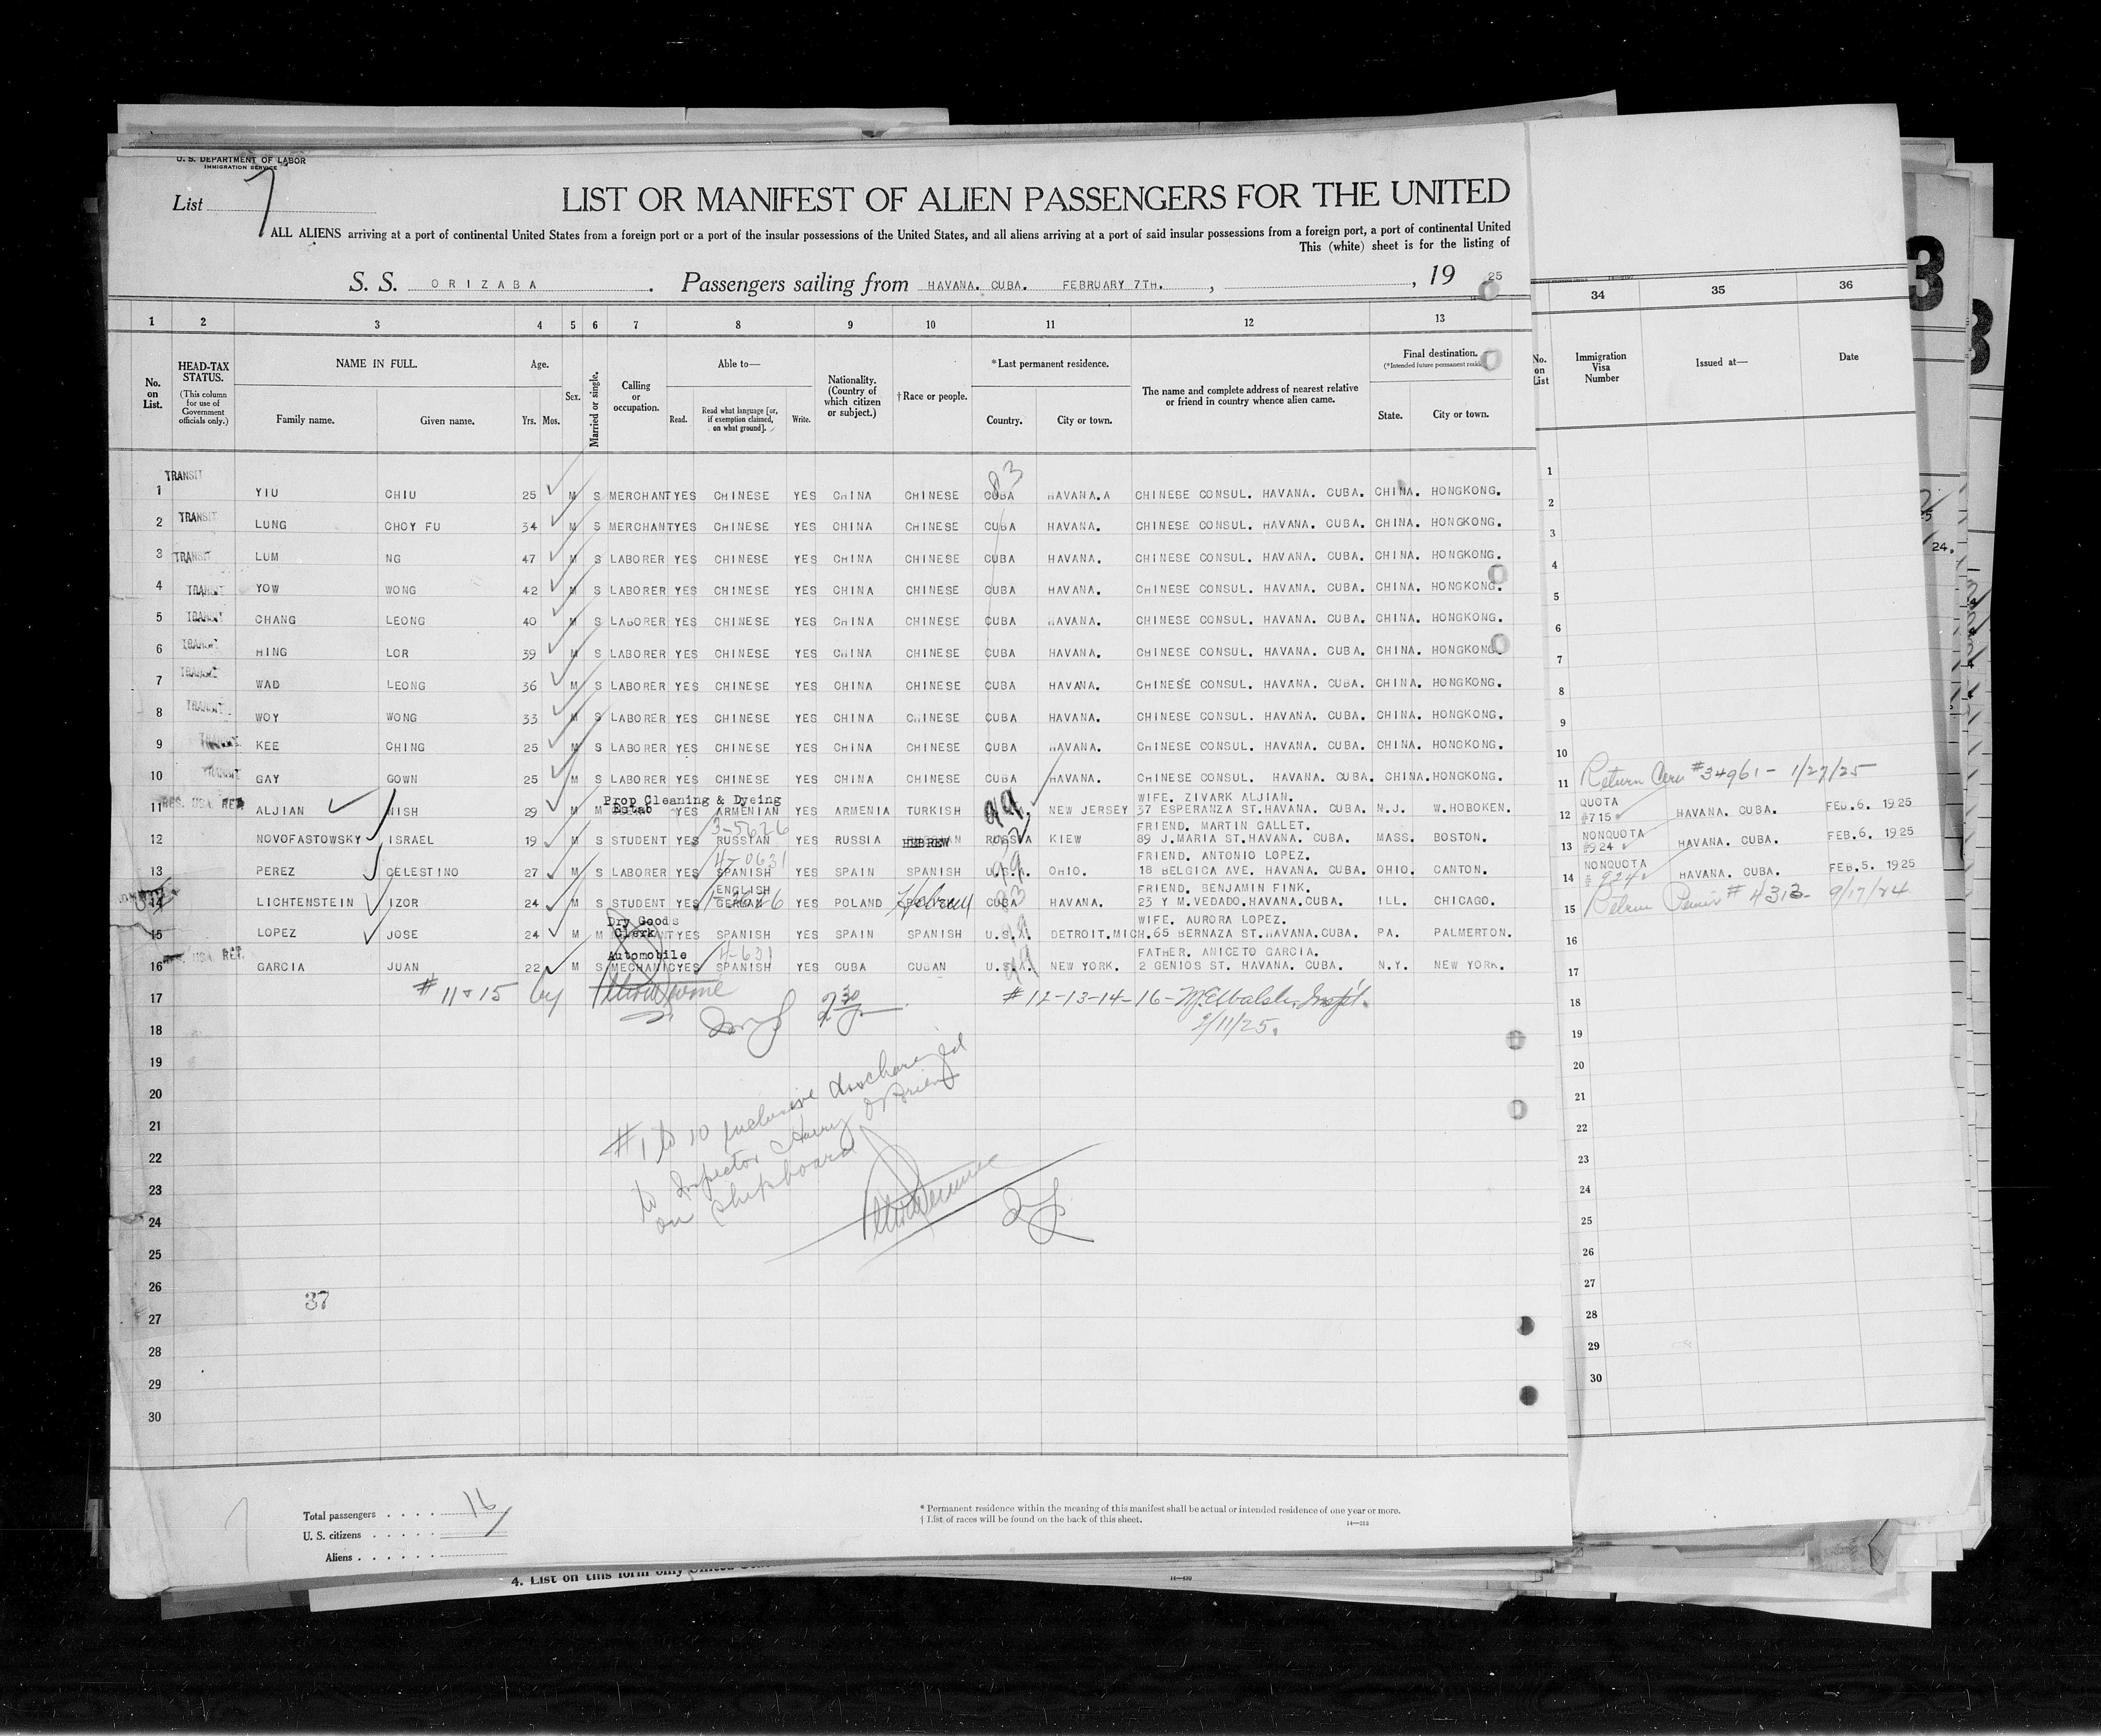 U. S. DEPARTMENT OF LABOR
IMMIGRATION SERVICE
List 7
LIST OR MANIFEST OF ALIEN PASSENGERS FOR THE UNITED
ALL ALIENS arriving at a port of continental United States from a foreign port or a port of the insular possessions of the United States, and all aliens arriving at a port of said insular possessions from a foreign port, a port of continental United
This (white) sheet is for the listing of
S. S. ORIZABA. Passengers sailing from HAVANA. CUBA. FEBRUARY 7TH. , , 19 25
1 2 3 4 5 6 7 8 9 10 11 12 13 34 35 36
No. on List.
HEAD-TAX STATUS. (This column for use of Government officials only.)
NAME IN FULL. Family name. Given name.
Age. Yrs. Mos.
Sex.
Married or single.
Calling or occupation.
Able to— Read. Read what language [or, if exemption claimed, on what ground]. Write.
Nationality. (Country of which citizen or subject.)
† Race or people.
*Last permanent residence. Country. City or town.
The name and complete address of nearest relative or friend in country whence alien came.
Final destination. (*Intended future permanent residence) State. City or town.
No. on List
Immigration Visa Number
Issued at—
Date
83
1 TRANSIT YIU CHIU 25 M S MERCHANT YES CHINESE YES CHINA CHINESE CUBA HAVANA.A CHINESE CONSUL. HAVANA. CUBA. CHINA. HONGKONG.
2 TRANSIT LUNG CHOY FU 34 M S MERCHANT YES CHINESE YES CHINA CHINESE CUBA HAVANA. CHINESE CONSUL. HAVANA. CUBA. CHINA. HONGKONG.
3 TRANSIT LUM NG 47 M S LABORER YES CHINESE YES CHINA CHINESE CUBA HAVANA. CHINESE CONSUL. HAVANA. CUBA. CHINA. HONGKONG.
4 TRANSIT YOW WONG 42 M S LABORER YES CHINESE YES CHINA CHINESE CUBA HAVANA. CHINESE CONSUL. HAVANA. CUBA. CHINA. HONGKONG.
5 TRANSIT CHANG LEONG 40 M S LABORER YES CHINESE YES CHINA CHINESE CUBA HAVANA. CHINESE CONSUL. HAVANA. CUBA. CHINA. HONGKONG.
6 TRANSIT HING LOR 39 M S LABORER YES CHINESE YES CHINA CHINESE CUBA HAVANA. CHINESE CONSUL. HAVANA. CUBA. CHINA. HONGKONG.
7 TRANSIT WAD LEONG 36 M S LABORER YES CHINESE YES CHINA CHINESE CUBA HAVANA. CHINESE CONSUL. HAVANA. CUBA. CHINA. HONGKONG.
8 TRANSIT WOY WONG 33 M S LABORER YES CHINESE YES CHINA CHINESE CUBA HAVANA. CHINESE CONSUL. HAVANA. CUBA. CHINA. HONGKONG.
9 TRANSIT KEE CHING 25 M S LABORER YES CHINESE YES CHINA CHINESE CUBA HAVANA. CHINESE CONSUL. HAVANA. CUBA. CHINA. HONGKONG.
10 TRANSIT GAY GOWN 25 M S LABORER YES CHINESE YES CHINA CHINESE CUBA HAVANA. CHINESE CONSUL. HAVANA. CUBA. CHINA. HONGKONG.
Prop Cleaning & Dyeing WIFE. ZIVARK ALJIAN.
11 RES. USA RET. ALJIAN NISH 29 M M Estab YES ARMENIAN YES ARMENIA TURKISH 99 NEW JERSEY 37 ESPERANZA ST.HAVANA. CUBA. N.J. W.HOBOKEN.
3-5626 FRIEND. MARTIN GALLET.
12 NOVOFASTOWSKY ISRAEL 19 M S STUDENT YES RUSSIAN YES RUSSIA HEBREW RUSSIA KIEW 89 J.MARIA ST.HAVANA. CUBA. MASS. BOSTON.
4-0631 FRIEND. ANTONIO LOPEZ.
13 PEREZ CELESTINO 27 M S LABORER YES SPANISH YES SPAIN SPANISH U.S.A. OHIO. 18 BELGICA AVE. HAVANA. CUBA. OHIO. CANTON.
ENGLISH FRIEND. BENJAMIN FINK.
14 LICHTENSTEIN IZOR 24 M S STUDENT YES GERMAN YES POLAND Hebrew CUBA HAVANA. 23 Y M.VEDADO.HAVANA.CUBA. ILL. CHICAGO.
Dry Goods WIFE. AURORA LOPEZ.
15 LOPEZ JOSE 24 M M Clerk YES SPANISH YES SPAIN SPANISH U.S.A. DETROIT.MICH. 65 BERNAZA ST.HAVANA.CUBA. PA. PALMERTON.
Automobile 4-631 FATHER. ANICETO GARCIA.
16 RES. USA RET. GARCIA JUAN 22 M S MECHANIC YES SPANISH YES CUBA CUBAN U.S.A. NEW YORK. 2 GENIOS ST. HAVANA. CUBA. N.Y. NEW YORK.
17 # 11 & 15 by # 12-13-14-16- Inspt.
18 2/11/25.
19
20
21 #1 to 10 inclusive discharged
22 to Inspector Harry O'Brien
23 on shipboard
24
25
26
37
27
28
29
30
1
2
3
4
5
6
7
8
9
10
11 Return #34961 - 1/27/25
12 QUOTA #715 HAVANA. CUBA. FEB.6. 1925
13 NONQUOTA #924 HAVANA. CUBA. FEB.6. 1925
14 NONQUOTA # 924 HAVANA. CUBA. FEB.5. 1925
15 Return Permit # 4313 9/17/24
16
17
18
19
20
21
22
23
24
25
26
27
28
29
30
Total passengers . . . . 16
U. S. citizens . . . . .
Aliens . . . . . .
* Permanent residence within the meaning of this manifest shall be actual or intended residence of one year or more.
† List of races will be found on the back of this sheet.
14—313
4. List on this form only United
3
24.